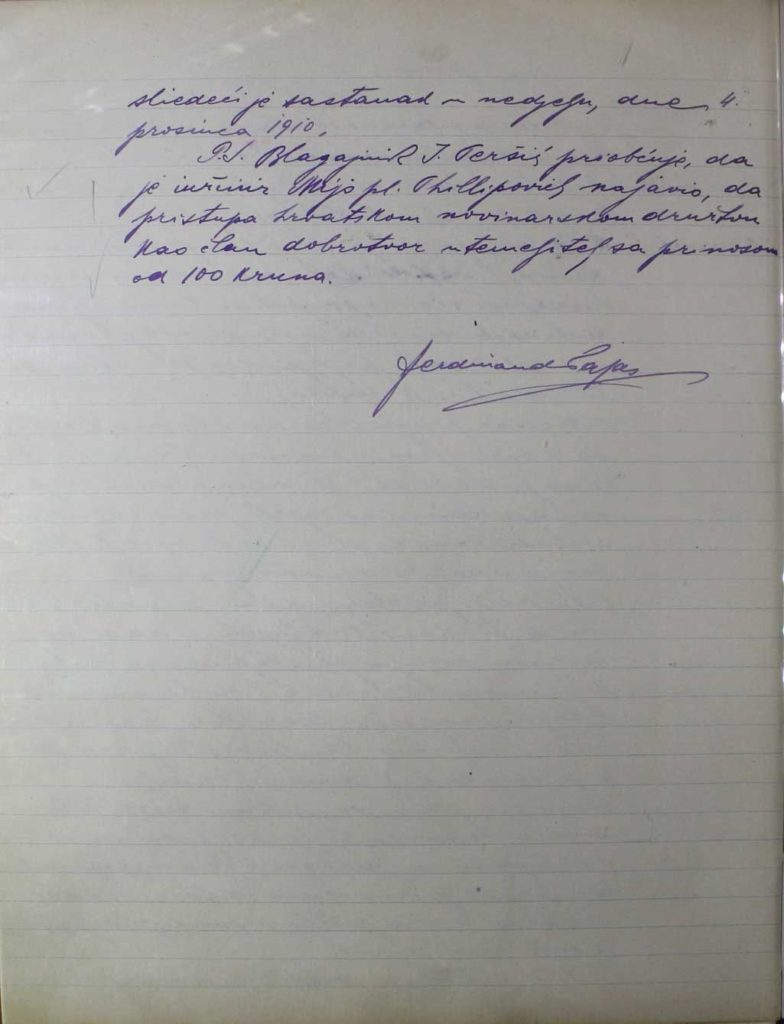 sliedeći je sastanak u nedjelju, dne 4.
prosinca 1910.
P.S. Blagajnik J. Peršić priobćuje, da
je inžinir Mijo pl. Phillipovich najavio, da
pristupa hrvatskom novinarskom društvu
kao član dobrotvor utemeljitelj sa prinosom
od 100 kruna.
Ferdinand Pajas